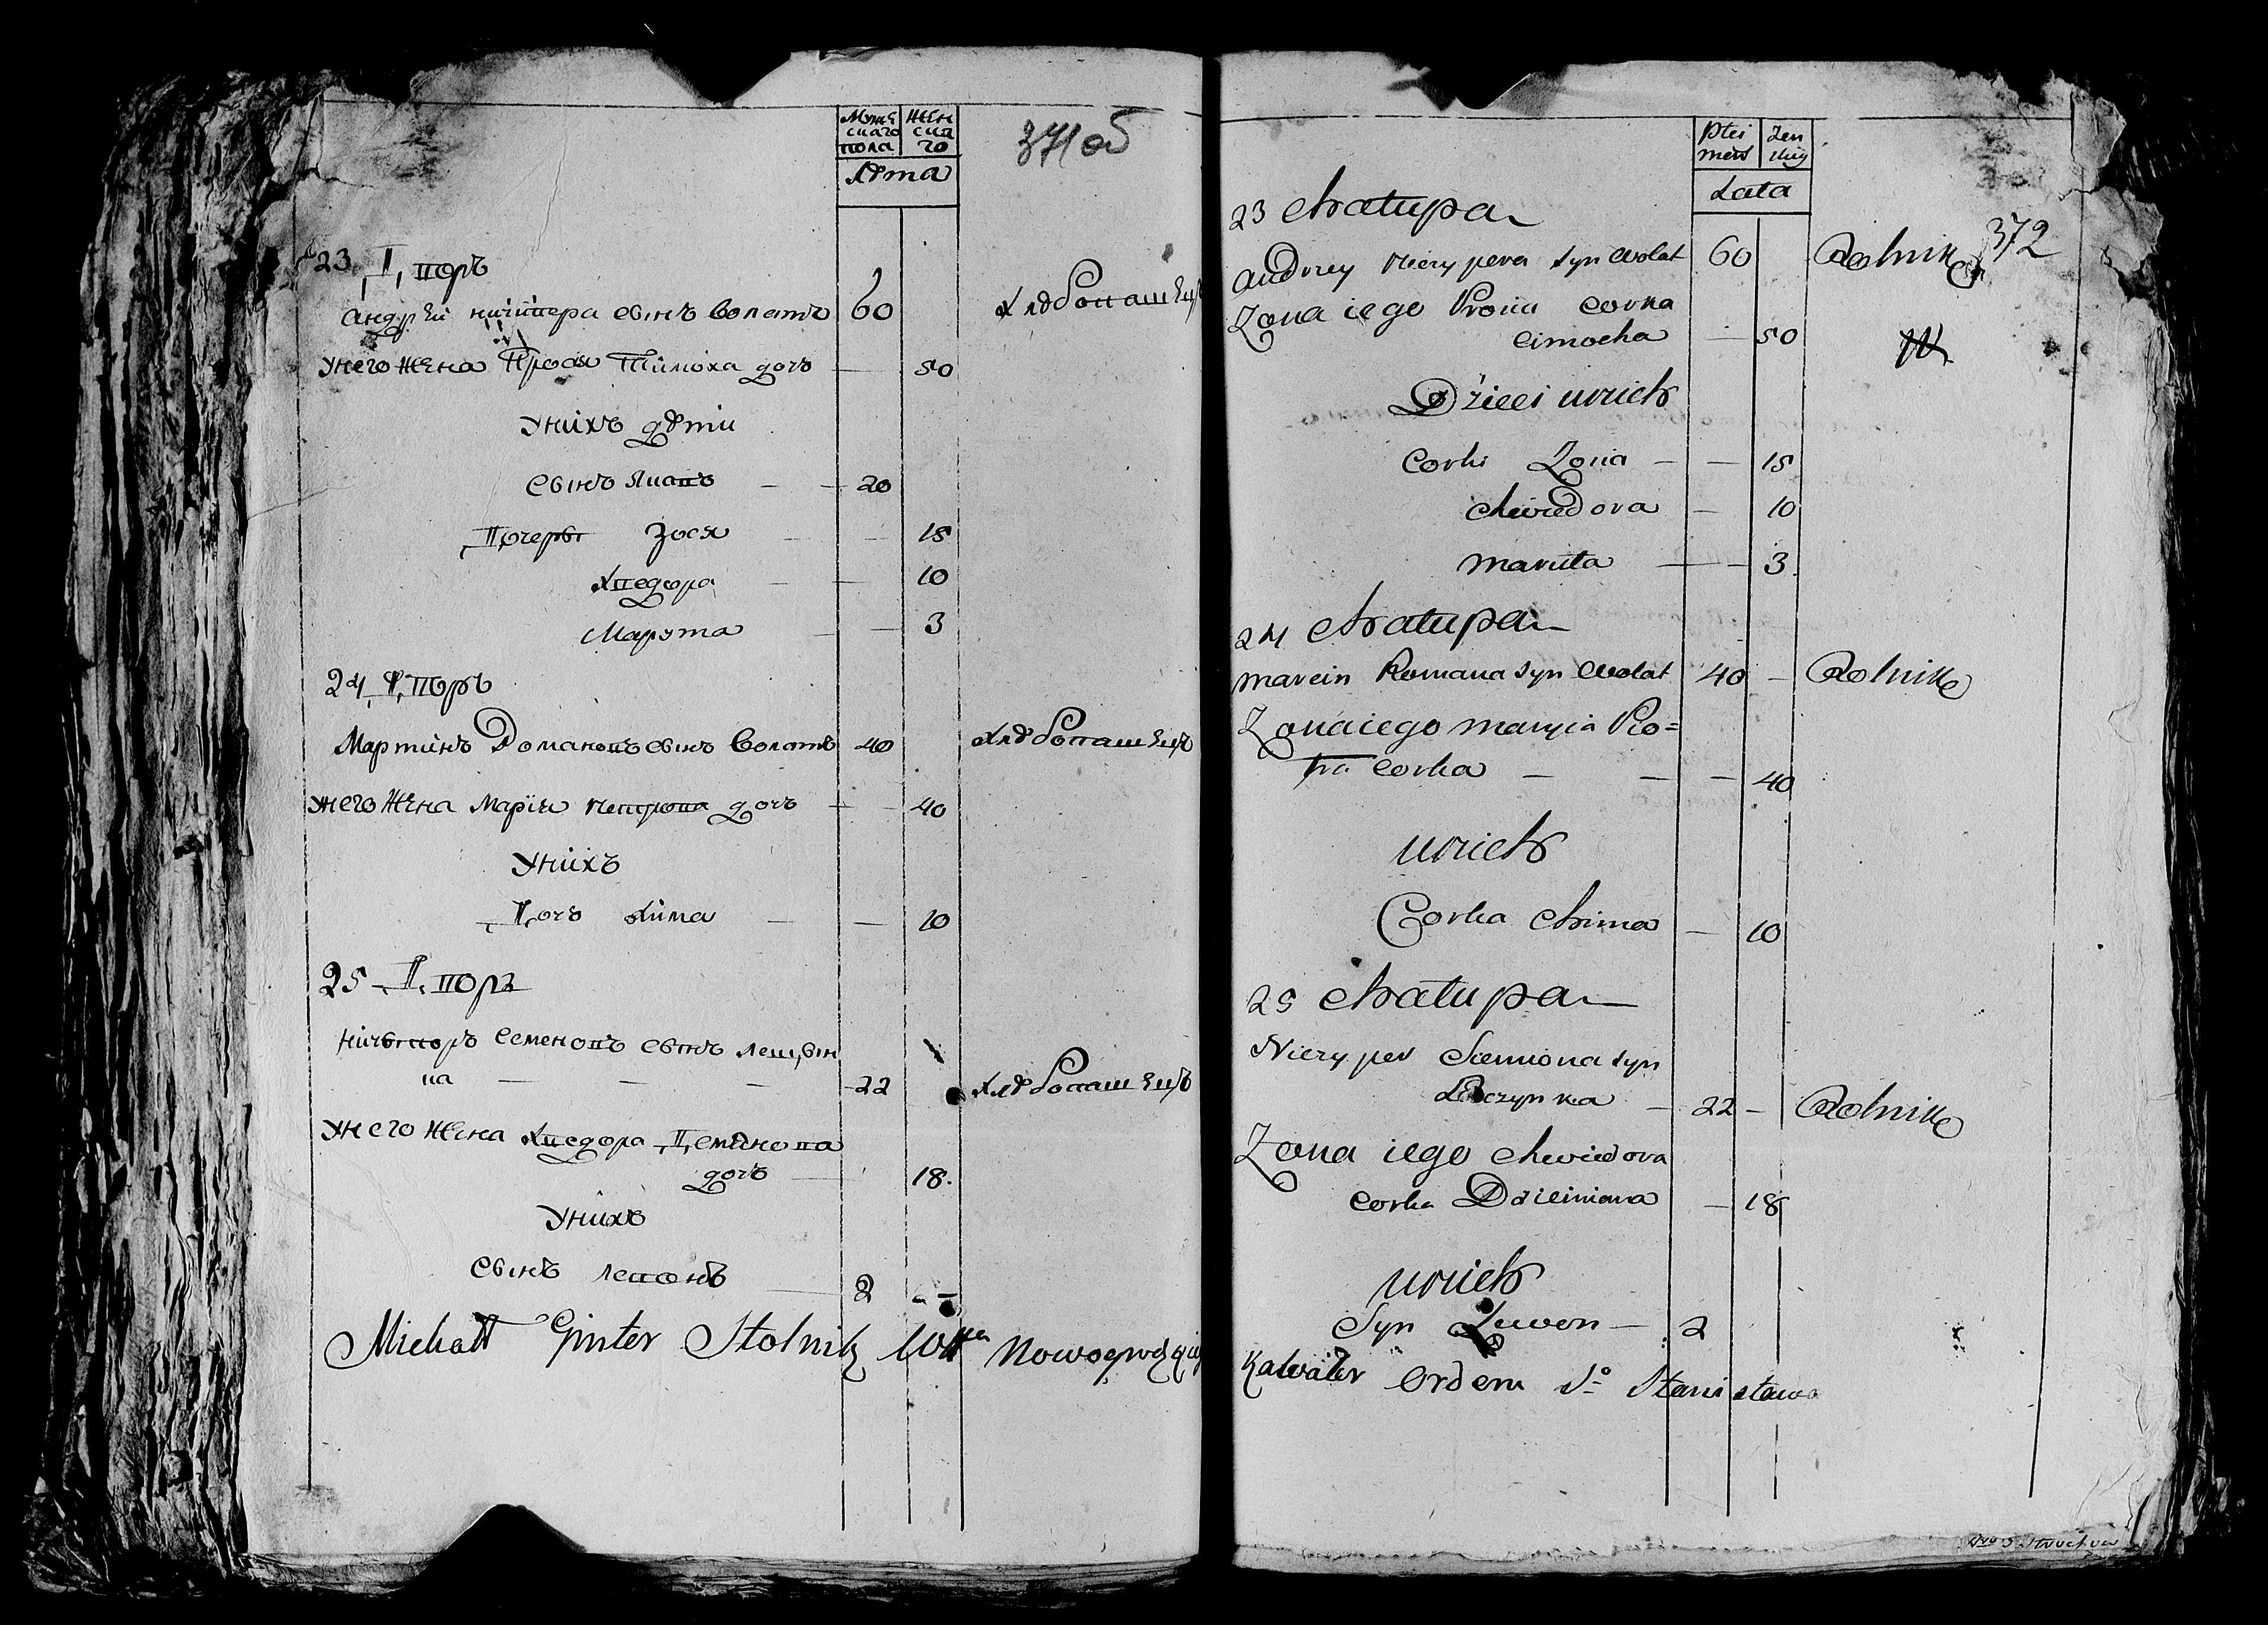 Муже
скаго
пола
жен
ска
го
лѣта
371об
23 Дворъ
Андрѣй Ничипера сынъ Волатъ 60 хлѣбопашецъ
Унего жена Прося Тимоха дочь — 50
Унихъ дѣти
сынъ Якапъ — — 20
Дочеры Зося — — 15
Хведора — — 10
Марута — — 3
24 Дворъ
Мартинъ Романовъ сынъ Волатъ 40 хлѣбопашецъ
Унего жена Марія Петрова дочь — — 40
Унихъ
Дочь Хима — — 10
25 Дворъ
Ничыпоръ Семеновъ сынъ Лещын
ка — — — 22 хлѣбопашецъ
Унего жена Хведора Деминова
дочь — 18.
Унихъ
сынъ Левонъ — 2 — —
Michatt Ginter Stolnik Nowogrodzki
Płci
mens
Zen
skiey
Lata
372
23 Chałupa
Andrey Niczypera syn Wolat 60 Rolnik
Zona iego Prosia Corka
Cimocha — 50
Dzieci u nich
Corki Zosia — — 15
Chwiedora — 10
Maruta — — 3.
24 Chałupa
Marcin Romana syn Wolat 40 — Rolnik
Zona iego Maryia Pio=
tra Corka — — — 40
u nich
Corka Chima — 10
25 Chałupa
Niczyper Siemiona syn
Leszczynka — 22 — Rolnik
Zona iego Chwiedora
Corka Dziemiana — 18
u nich
Syn Lewon — 2
Kawaler Orderu So Stanisława